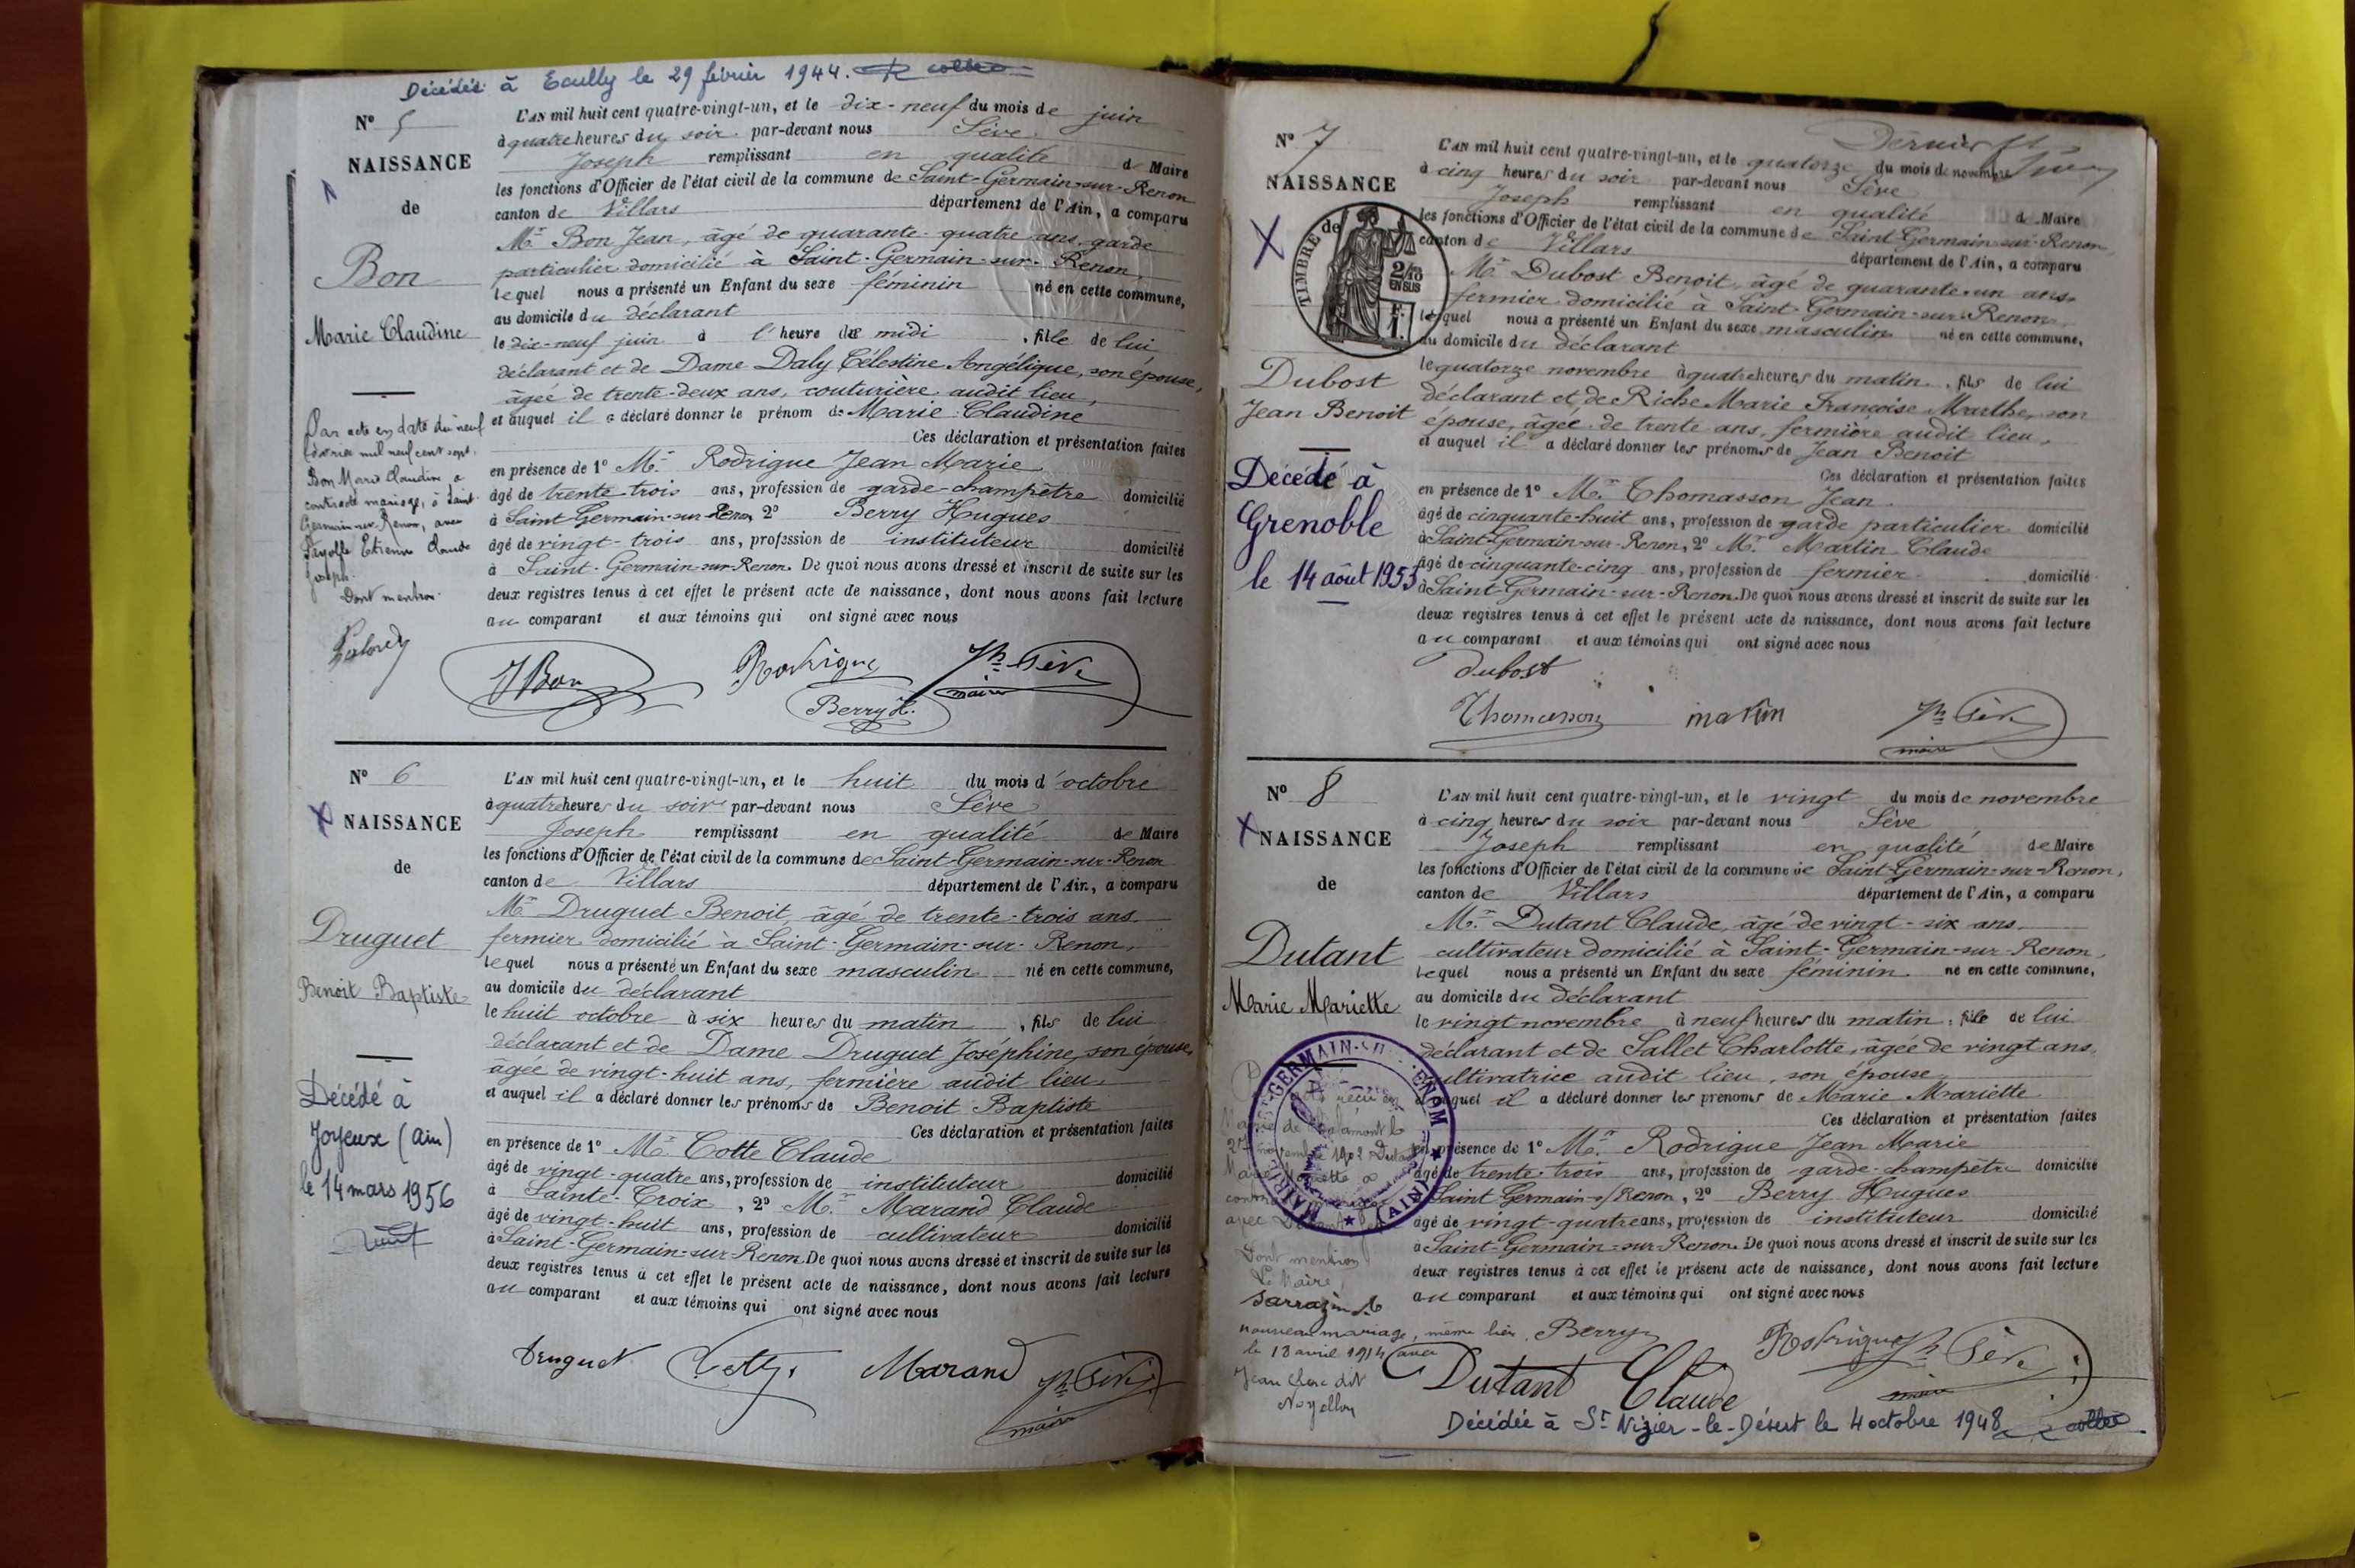 Décédée à Ecully le 29 février 1944.
N° 5
NAISSANCE
de
Bon
Marie Claudine
Par acte en date du neuf
février mil neuf cent sept,
Bon Marie Claudine a
contracté mariage, à Saint-
Germain-sur-Renon, avec
Etienne Claude
Joseph.
Dont mention.
L'AN mil huit cent quatre-vingt-un, et le dix-neuf du mois de juin
à quatre heures du soir par-devant nous Sève
Joseph remplissant en qualité de Maire
les fonctions d'Officier de l'état civil de la commune de Saint-Germain-sur-Renon
canton de Villars département de l'Ain, a comparu
Mr Bon Jean, âgé de quarante-quatre ans, garde
particulier domicilié à Saint-Germain-sur-Renon,
lequel nous a présenté un Enfant du sexe féminin né en cette commune,
au domicile du déclarant
le dix-neuf juin à l'heure de midi, fille de lui
déclarant et de Dame Daly Célestine Angélique, son épouse,
âgée de trente-deux ans, couturière audit lieu,
et auquel il a déclaré donner le prénom de Marie Claudine
Ces déclaration et présentation faites
en présence de 1° Mr Rodrigue Jean Marie
âgé de trente-trois ans, profession de garde-champêtre domicilié
à Saint-Germain-sur-Renon, 2° Berry Hugues
âgé de vingt-trois ans, profession de instituteur domicilié
à Saint-Germain-sur-Renon. De quoi nous avons dressé et inscrit de suite sur les
deux registres tenus à cet effet le présent acte de naissance, dont nous avons fait lecture
au comparant et aux témoins qui ont signé avec nous
J Bon Rodrigue Jh Sève
Berry H. maire
N° 6
NAISSANCE
de
Druguet
Benoit Baptiste
Décédé à
Joyeux (Ain)
le 14 mars 1956
L'AN mil huit cent quatre-vingt-un, et le huit du mois d'octobre
à quatre heures du soir par-devant nous Sève
Joseph remplissant en qualité de Maire
les fonctions d'Officier de l'état civil de la commune de Saint-Germain-sur-Renon
canton de Villars département de l'Ain, a comparu
Mr Druguet Benoit, âgé de trente-trois ans
fermier domicilié à Saint-Germain-sur-Renon,
lequel nous a présenté un Enfant du sexe masculin né en cette commune,
au domicile du déclarant
le huit octobre à six heures du matin, fils de lui
déclarant et de Dame Druguet Joséphine, son épouse,
âgée de vingt-huit ans, fermière audit lieu,
et auquel il a déclaré donner les prénoms de Benoit Baptiste
Ces déclaration et présentation faites
en présence de 1° Mr Cotte Claude
âgé de vingt-quatre ans, profession de instituteur domicilié
à Sainte-Croix, 2° Mr Marand Claude
âgé de vingt-huit ans, profession de cultivateur domicilié
à Saint-Germain-sur-Renon. De quoi nous avons dressé et inscrit de suite sur les
deux registres tenus à cet effet le présent acte de naissance, dont nous avons fait lecture
au comparant et aux témoins qui ont signé avec nous
Druguet Cotte Marand Jh Sève
maire
Dernier
N° 7
NAISSANCE
de
TIMBRE
2/10
EN SUS
F.
1.
Dubost
Jean Benoit
Décédé à
Grenoble
le 14 août 1953
L'AN mil huit cent quatre-vingt-un, et le quatorze du mois de novembre
à cinq heures du soir par-devant nous Sève
Joseph remplissant en qualité de Maire
les fonctions d'Officier de l'état civil de la commune de Saint-Germain-sur-Renon,
canton de Villars département de l'Ain, a comparu
Mr Dubost Benoit, âgé de quarante-un ans
fermier domicilié à Saint-Germain-sur-Renon,
lequel nous a présenté un Enfant du sexe masculin né en cette commune,
au domicile du déclarant
le quatorze novembre à quatre heures du matin, fils de lui
déclarant et de Riche Marie Françoise Marthe, son
épouse, âgée de trente ans, fermière audit lieu,
et auquel il a déclaré donner les prénoms de Jean Benoit
Ces déclaration et présentation faites
en présence de 1° Mr Thomasson Jean
âgé de cinquante-huit ans, profession de garde particulier domicilié
à Saint-Germain-sur-Renon, 2° Mr Martin Claude
âgé de cinquante-cinq ans, profession de fermier domicilié
à Saint-Germain-sur-Renon. De quoi nous avons dressé et inscrit de suite sur les
deux registres tenus à cet effet le présent acte de naissance, dont nous avons fait lecture
au comparant et aux témoins qui ont signé avec nous
Dubost
Thomasson martin Jh Sève
maire
N° 8
NAISSANCE
de
Dutant
Marie Mariette
27 1902 Dutant
Dont mention
Le Maire,
Sarrazin
nouveau mariage, même lieu,
le 18 avril 1914 avec
Jean Clerc dit
Noyellon
L'AN mil huit cent quatre-vingt-un, et le vingt du mois de novembre
à cinq heures du soir par-devant nous Sève
Joseph remplissant en qualité de Maire
les fonctions d'Officier de l'état civil de la commune de Saint-Germain-sur-Renon,
canton de Villars département de l'Ain, a comparu
Mr Dutant Claude, âgé de vingt-six ans
cultivateur domicilié à Saint-Germain-sur-Renon,
lequel nous a présenté un Enfant du sexe féminin né en cette commune,
au domicile du déclarant
le vingt novembre à neuf heures du matin, fille de lui
déclarant et de Sallet Charlotte, âgée de vingt ans,
cultivatrice audit lieu, son épouse
et auquel il a déclaré donner les prénoms de Marie Mariette
Ces déclaration et présentation faites
en présence de 1° Mr Rodrigue Jean Marie
âgé de trente-trois ans, profession de garde-champêtre domicilié
à Saint Germain-s/Renon, 2° Berry Hugues
âgé de vingt-quatre ans, profession de instituteur domicilié
à Saint-Germain-sur-Renon. De quoi nous avons dressé et inscrit de suite sur les
deux registres tenus à cet effet le présent acte de naissance, dont nous avons fait lecture
au comparant et aux témoins qui ont signé avec nous
Berry Rodrigue Jh Sève
Dutant Claude maire
Décédée à St Nizier-le-Désert le 4 octobre 1948